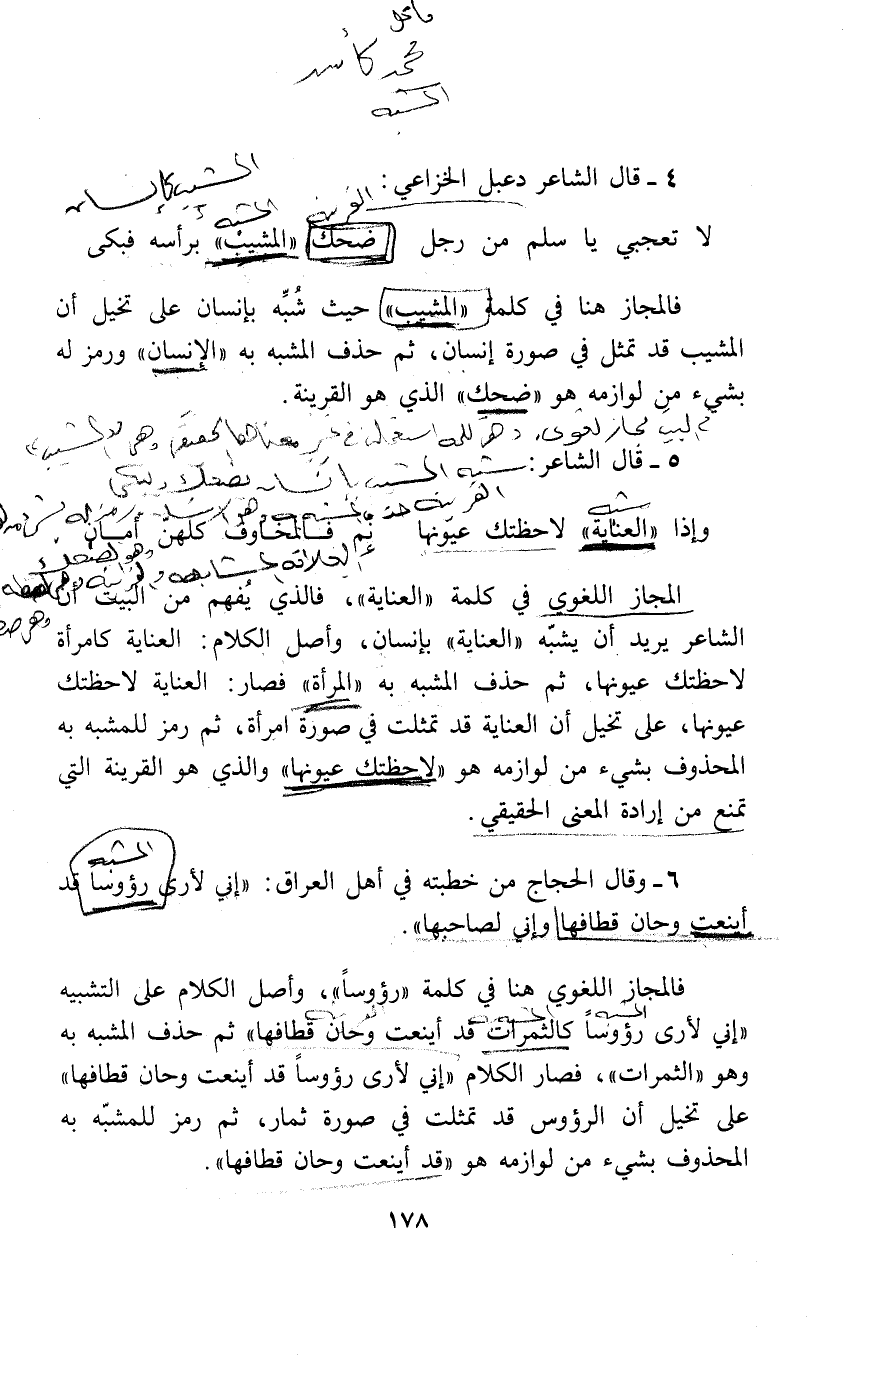 محمد كأسد
المشبه
٤ ـ قال الشاعر دعبل الخزاعي :
المشيب كإنسان
القرينة
المشبه
لا تعجبي يا سلم من رجل ضحك «المشيب» برأسه فبكى
فالمجاز هنا في كلمة «المشيب» حيث شُبِّه بإنسان على تخيل أن
المشيب قد تمثل في صورة إنسان، ثم حذف المشبه به «الإنسان» ورمز له
بشيء من لوازمه هو «ضحك» الذي هو القرينة .
مجاز لغوي، وهي كلمة استعملت في غير معناها الحقيقي وهي «المشيب»
٥ ـ قال الشاعر :
شبه المشيب بإنسان يضحك ويبكي
القرينة
شبه
وإذا «العناية» لاحظتك عيونها نم فـالمخاوف كلهنّ أمـان
العلاقة المشابهة
المجاز اللغوي في كلمة «العناية»، فالذي يُفهم من البيت أن
الشاعر يريد أن يشبّه «العناية» بإنسان، وأصل الكلام : العناية كامرأة
لاحظتك عيونها، ثم حذف المشبه به «المرأة» فصار : العناية لاحظتك
عيونها، على تخيل أن العناية قد تمثلت في صورة امرأة، ثم رمز للمشبه به
المحذوف بشيء من لوازمه هو «لاحظتك عيونها» والذي هو القرينة التي
تمنع من إرادة المعنى الحقيقي .
المشبه
٦ ـ وقال الحجاج من خطبته في أهل العراق : «إني لأرى رؤوساً قد
أينعت وحان قطافها وإني لصاحبها» .
فالمجاز اللغوي هنا في كلمة «رؤوساً»، وأصل الكلام على التشبيه
المشبه
المشبه به
«إني لأرى رؤوساً كالثمرات قد أينعت وحان قطافها» ثم حذف المشبه به
وهو «الثمرات»، فصار الكلام «إني لأرى رؤوساً قد أينعت وحان قطافها»
على تخيل أن الرؤوس قد تمثلت في صورة ثمار، ثم رمز للمشبّه به
المحذوف بشيء من لوازمه هو «قد أينعت وحان قطافها» .
١٧٨